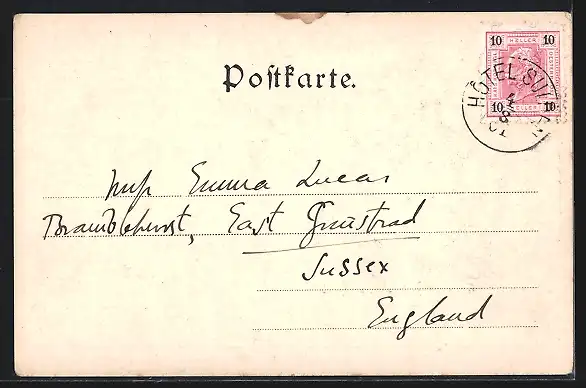 Postkarte.
10 HELLER 10
10 HELLER 10
HÔTEL SUL
Miss Emma Lucas
Bramblehurst, East Grinstead
Sussex
England